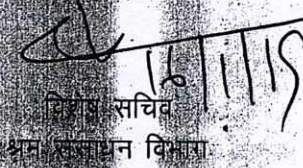 16/11/15
विशेष सचिव
श्रम संसाधन विभाग